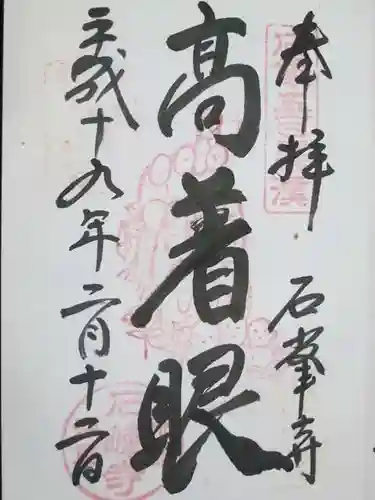 奉拝
石峯寺
高着眼
平成十九年二月十二日
石峰寺